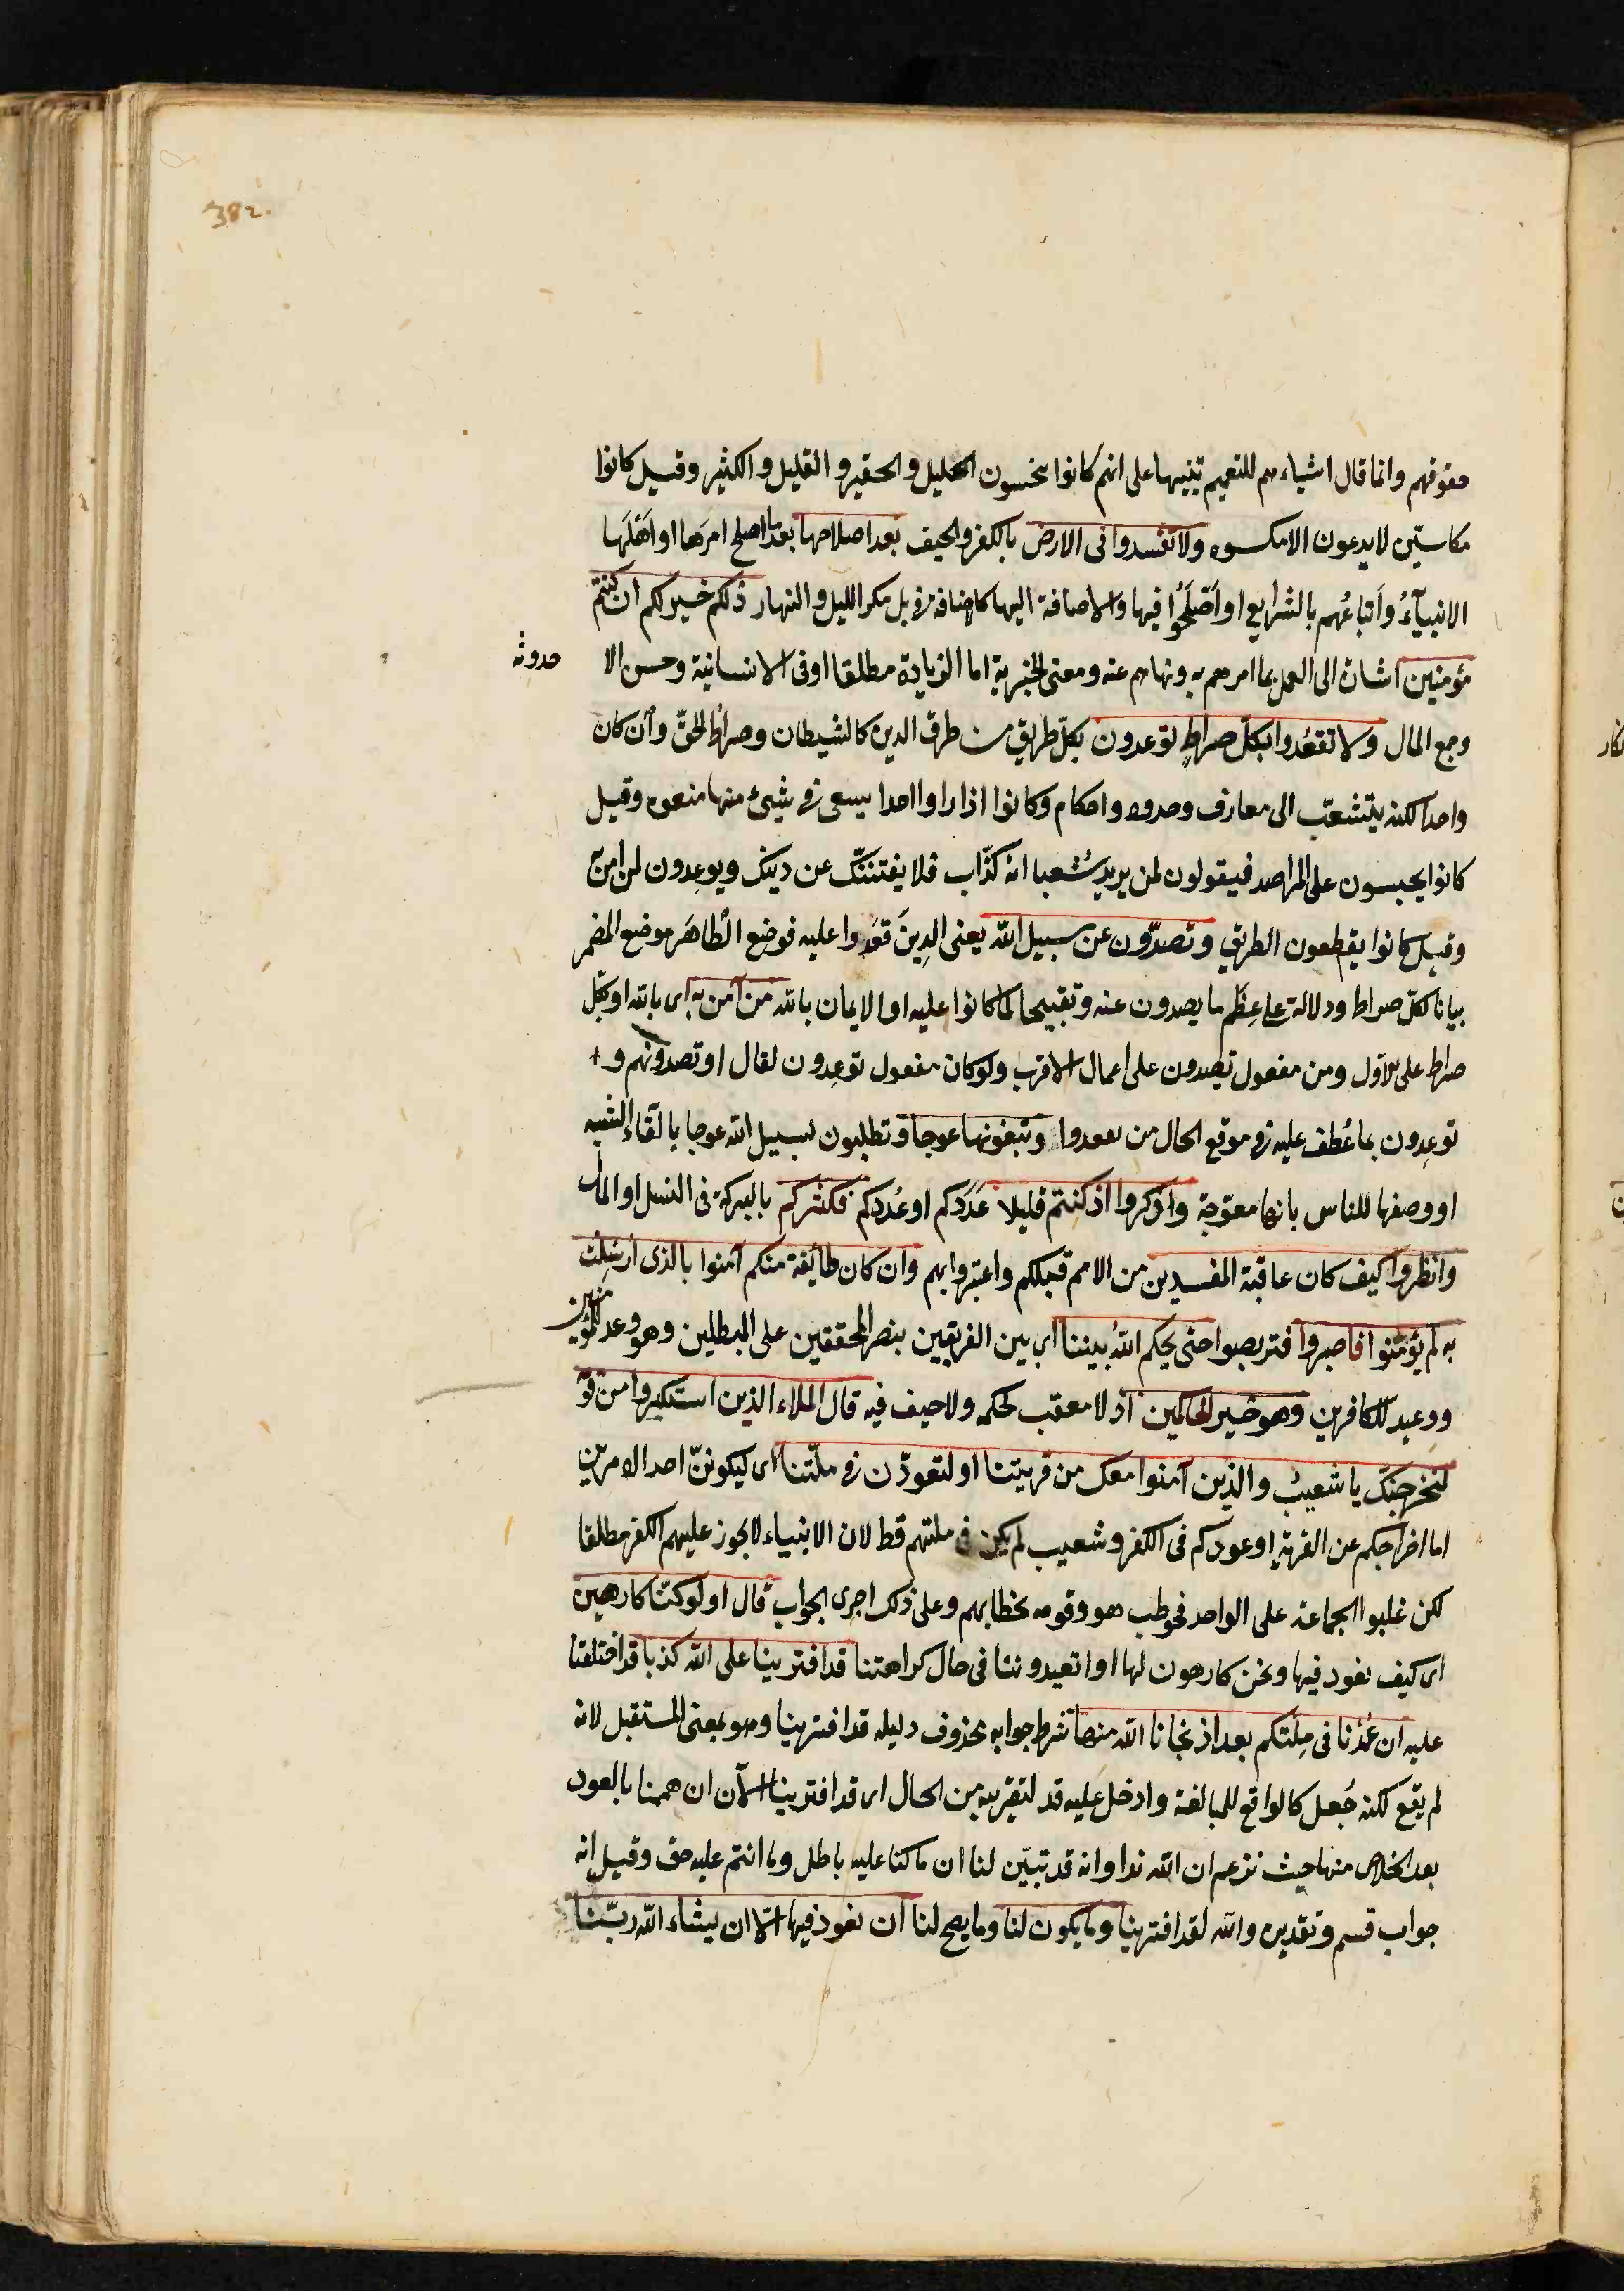 382.
حقوقهم وانما قال اشياءهم للتعميم تنبيها على انهم كانوا يبخسون الجليل والحقير والقليل والكثير وقيل كانوا
مكاسين لا يدعون الا مكسوه ولا تفسدوا فى الارض بالكفر والحيف بعد اصلاحها بعدما اصلح امرها او اهلها
الانبياءُ واتباعُهم بالشرايع او اَصْلَحُوا فيها والاضافة اليها كاضافة فى بل مكر الليل والنهار ذلكم خير لكم ان كنتم
مؤمنين اشارة الى العمل بما امرهم به ونهاهم عنه ومعنى الخيرية اما الزيادة مطلقا او فى الانسانية وحسن الا
حدوثه
وجمع المال ولا تقعُدوا بكلّ صراطٍ توعدون بكلّ طريق من طرق الدين كالشيطان وصراطُ الحقّ واِن كان
واحدا لكنه يتشعّب الى معارف وحدود واحكام وكانوا اذا راوا احدا يسعى فى شيئ منها منعوه وقيل
كانوا يجلسون على المراصد فيقولون لمن يريد شعيبا انه كذّاب فلا يفتننّك عن دينك ويوعِدون لمن امن به
وقيل كانوا يقطعون الطريق وتصدّون عن سبيل الله يعنى الذِينَ قعَدوا عليه فوضع الظاهَر موضع المضمر
بيانا لكلّ صراط ودلالة على عِظَم ما يصدون عنه وتقبيحا لما كانوا عليه او الايمان بالله من آمن به اى بالله او بكل
صراط على الاوّل ومن مفعول تصدون على اعمال الاقرب ولو كان مفعول توعِدون لقال او تصدونهم و
توعِدون بما عُطف عليه فى موقع الحال من تقعدوا وتبغونها عوجا وتطلبون لسبيل الله عوجا بالقاء الشبه
او وصفها للناس بانها معوّجة واذكروا اذ كنتم قليلا عَدَدكم او عُدَدكم فكثركم بالبركة فى النسل او المال
وانظروا كيف كان عاقبة المفسدين من الامم قبلكم واعتبروا بهم وان كان طائفة منكم آمنوا بالذى ارسِلت
به لم يؤمنوا فاصبروا فتربصوا حتى يحكم اللهُ بيننا اى بين الفريقين بنصر المحققين على المبطلين وهو وعد للمؤمنين
ووعيد للكافرين وهو خير الحاكمين اذ لا معقب لحكمه ولا حيف فيه قال الملاء الذين استكبروا من قو
لنخرجنّك يا شعيبُ والذين آمنوا معك من قريتنا او لتعودُن فى ملّتنا اى ليكوننّ احد الامرين
اما اخراجكم عن القرية او عودكم فى الكفر وشعيب لم يكن فى ملتهم قط لان الانبياء لا يجوز عليهم الكفر مطلقا
لكن غلبوا الجماعة على الواحد فخوطب هو وقومه بخطابهم وعلى ذلك اجرى الجواب قال اولو كنّا كارهين
اى كيف نعود فيها ونحن كارهون لها او اتعيدوننا فى حال كراهتنا قد افترينا على الله كذبا قد اختلقنا
عليه ان عُدْنا فى مِلّتكم بعد اذ نجانا الله منها شرط جوابه محذوف دليله قد افترينا وهو بمعنى المستقبل لانه
لم يقع لكنه جُعل كالواقع للمبالغة وادخل عليه قد لتقريبه من الحال اى قد افترينا الآن ان هممنا بالعود
بعد الخلاص منها حيث نزعم ان لله ندا وانه قد تبيّن لنا ان ما كنا عليه باطل وما انتم عليه حق وقيل انه
جواب قسم وتقديره والله لقد افترينا وما يكون لنا وما يصح لنا ان نعود فيها الّا ان يشاء الله ربّنا